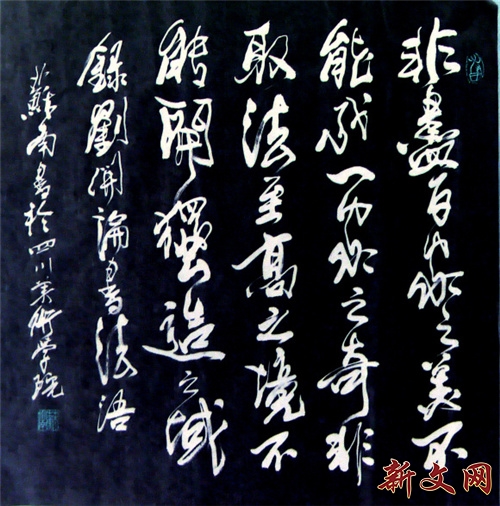 非盡百家之美不
能成一家之奇非
取法至高之境不
能開獨造之域
錄劉開論書法語
蘇南書於四川美術學院
新文网